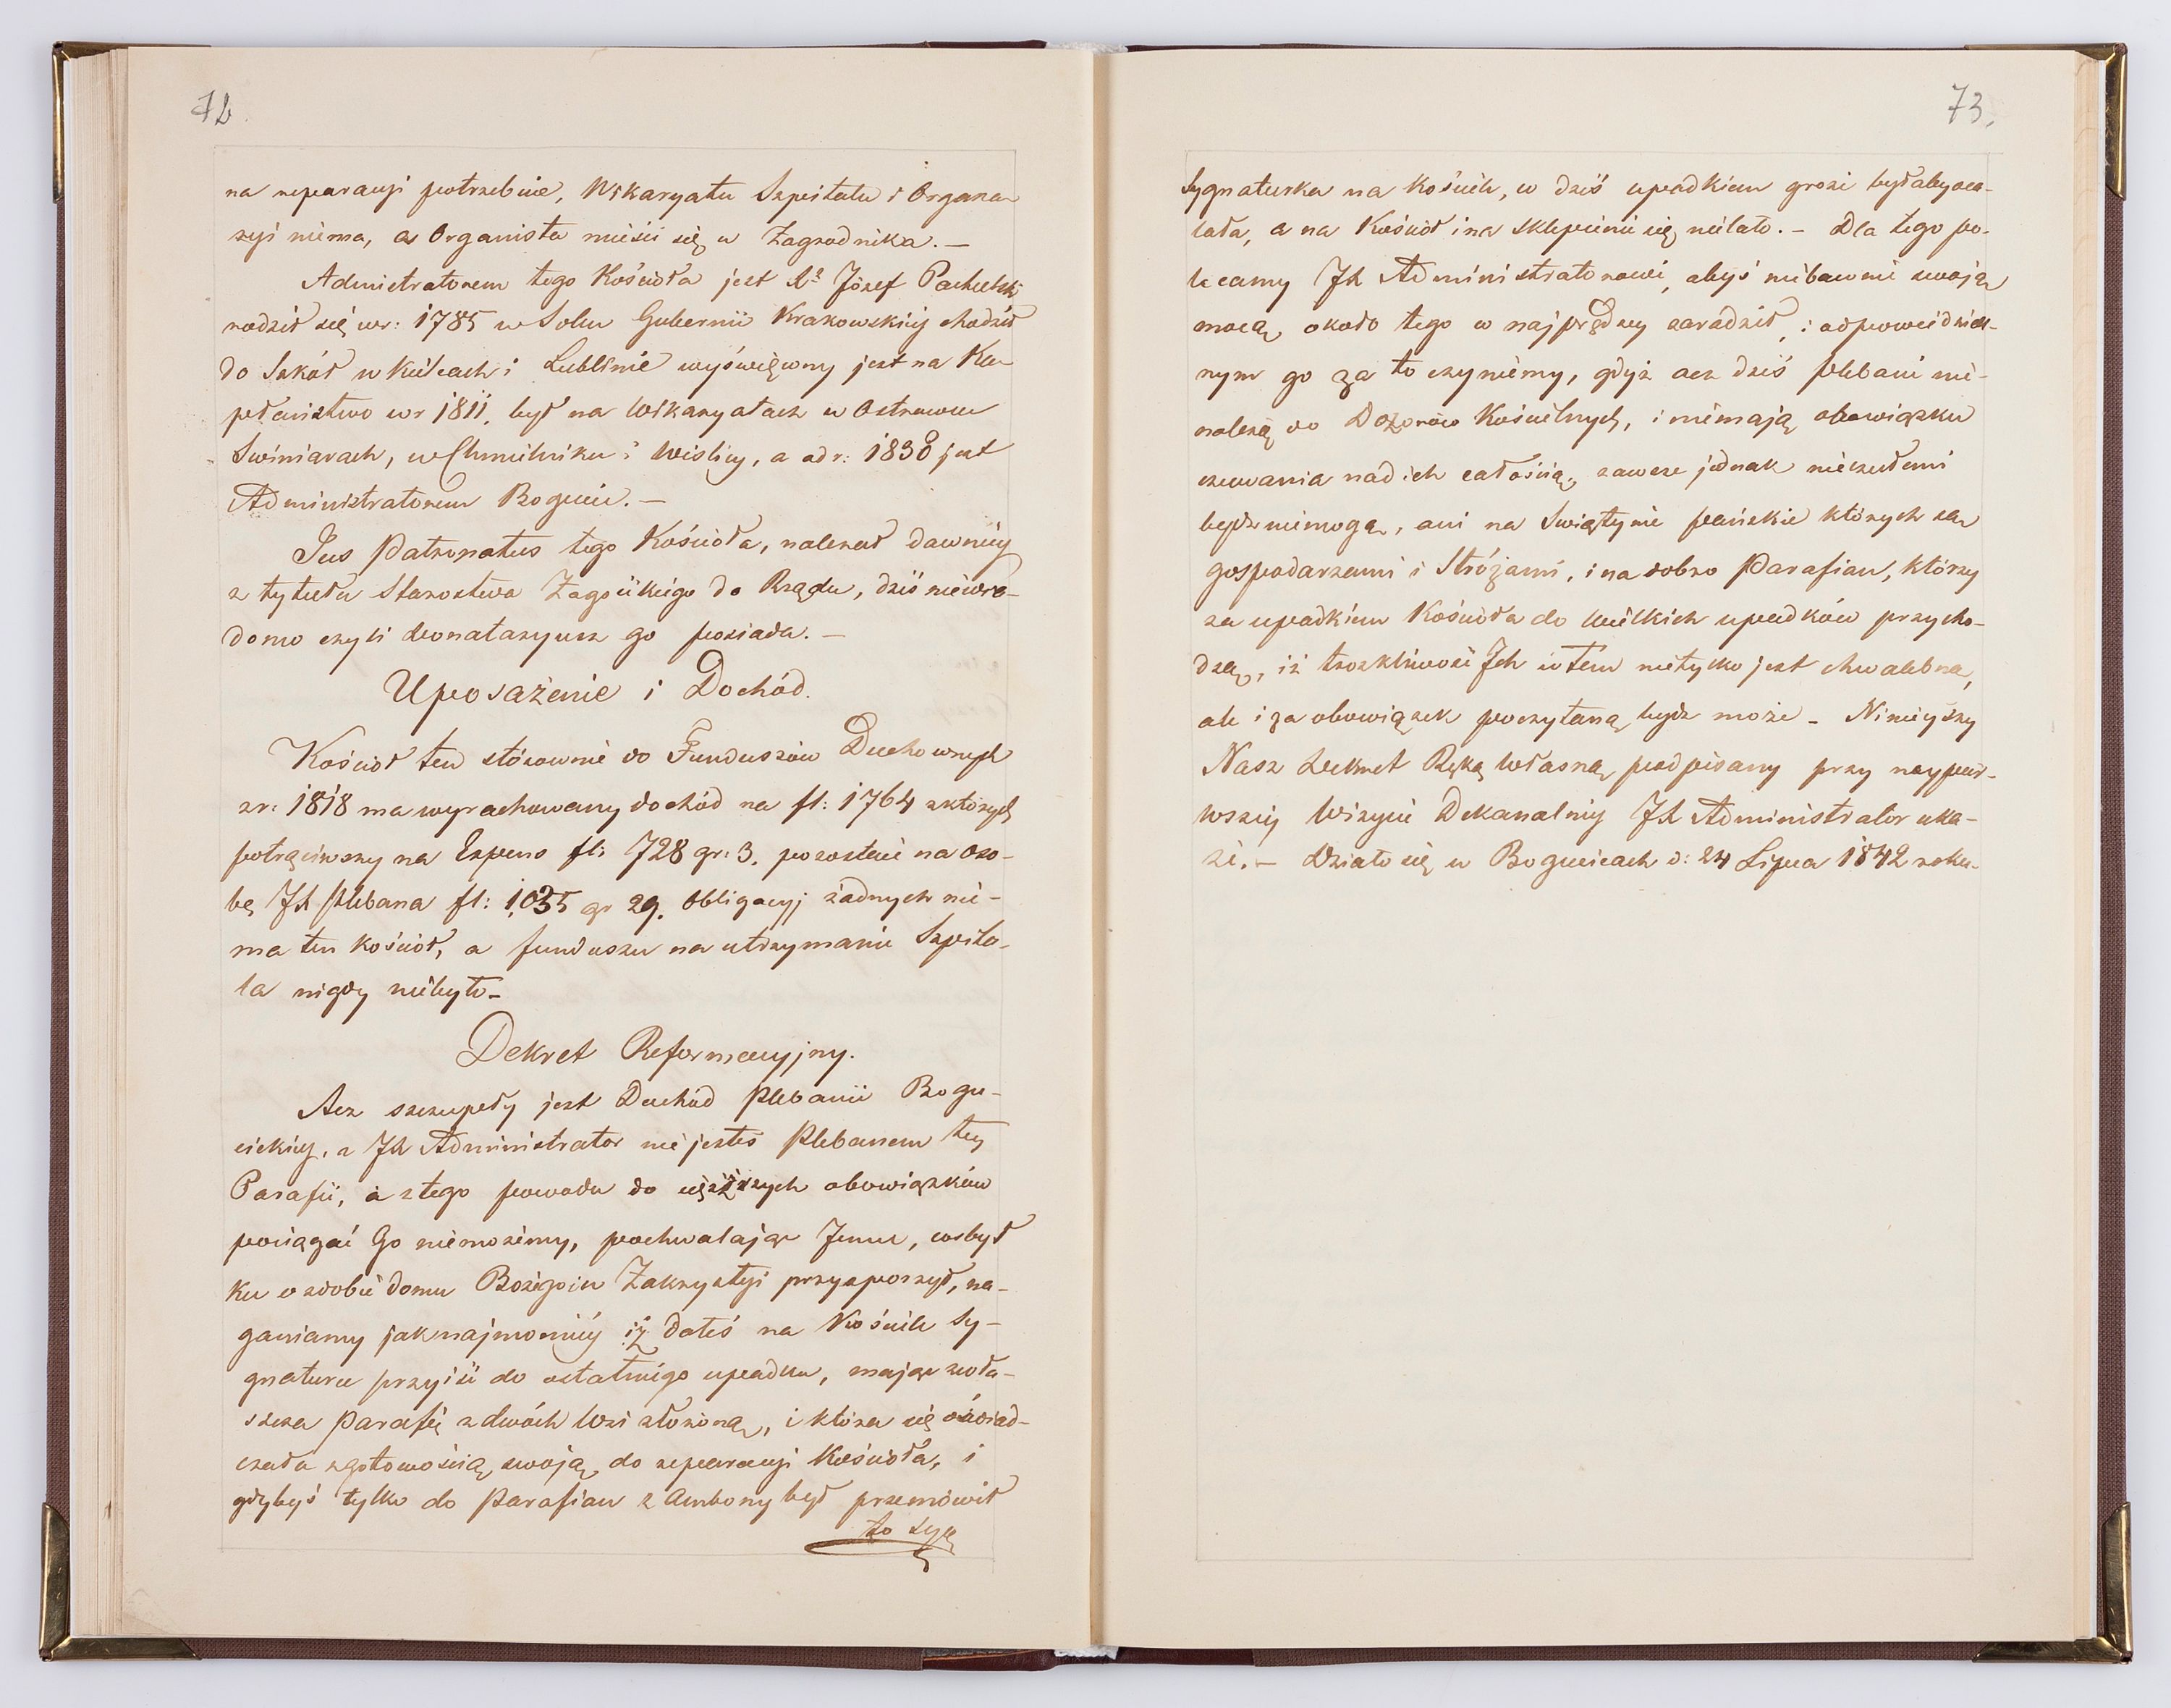 72
na reparacyi potrzebuie, Wikaryatu Szpitalu i Organa-
ryi niema, a Organista mieści się u Zagrodnika. —
Administratorem tego Kościoła jest Józef
rodził się w r: 1785 w Solcu Gubernii Krakowskiéy chodził
do Szkół w Kielcach i Lublinie wyświęcony jest na Ka-
płaństwo w r 1811, był na Wikaryatach w Ostrowcu
Swiniarach, w Chmielniku i Wislicy, a od r: 1830 jest
Administratorem Bogucic. —
Jus Patronatus tego Kościoła, należał dawniéy
z tytułu Starostwa Zagoiskiego do Rządu, dziś niewia-
domo czyli donataryusz go posiada. —
Uposażenie i Dochód.
Kościół ten stósownie do Funduszów Duchownych
z r: 1818 ma wyrachowany dochód na fl: 1764 z których
potrąciwszy na Expens fl: 728 gr: 3. pozostaie na oso-
bę JX Plebana fl: 1,035 gr 29. Obligacyj żadnych nie-
ma ten kościół, a funduszu na utrzymanie Szpita-
la nigdy niebyło —
Dekret Reformacyjny.
Acz szczupły jest Dochód Plebanii Bogu-
cickiéy, a JX Administrator nie jesteś Plebanem tey
Parafii, a z tego powodu do cięższych obowiązków
pociągać Go niemożemy, pochwalając Jemu, coś był
ku ozdobie domu Bożego i w Zakrystyi przysporzył, na-
ganiamy jak najmocniéy iż dałeś na Kościele Sy-
gnaturce przyiść do ostatniego upadku, mając zwła-
szcza Parafię z dwóch Wsi złożoną, i która się oświad-
czała z gotowością swoją do reparacyi Kościoła, i
gdybyś tylko do Parafian z Ambony był przemówił
to Syg
73.
Sygnaturka na Kościele, co dziś upadkiem grozi byłaby oca-
lała, a na Kościół i na sklepienie się nielało. — Dla tego po-
lecamy JX Administratorowi, abyś niebawnie swoją
mocą około tego co najprędzey zaradził, i odpowiedzial-
nym go za to czyniemy, gdyż acz dziś Plebani nie-
należą do Dozorów Kościelnych, i niemają obowiązku
czuwania nad ich całością, zawsze jednak nieczułemi
bydź niemogą, ani na Swiątynie pańskie których są
gospodarzami i Stróżami, i na dobro Parafian, którzy
za upadkiem Kościoła do wielkich upadków przycho-
dzą, iż troskliwość Jch w tem nietylko jest chwalebna,
ale i za obowiązek poczytaną bydź może — Ninieyszy
Nasz Dekret Ręką Własną podpisany przy naypier-
wszéy Wizycie Dekanalnéy JX Administrator uka-
że. — Działo się w Bogucicach d: 24 Lipca 1842 roku.